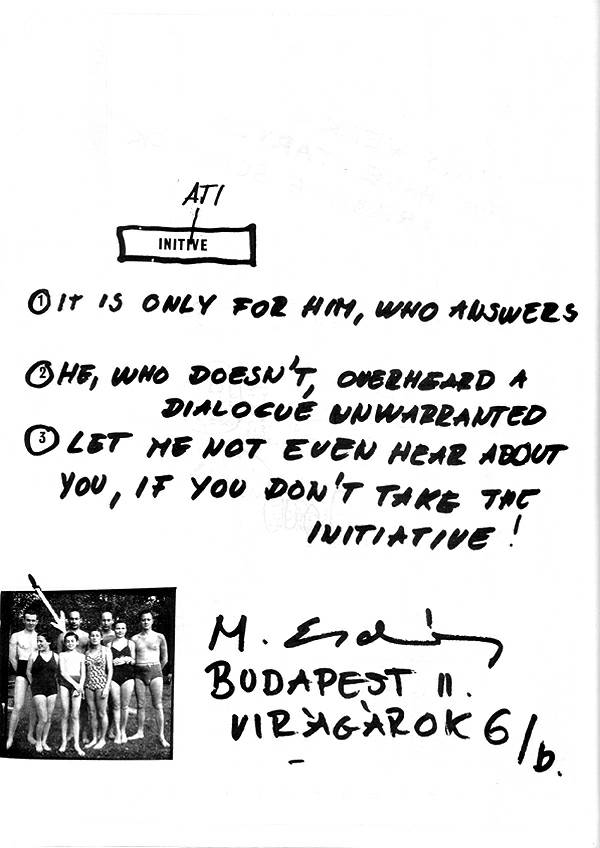 ATI
INITIVE
① IT IS ONLY FOR HIM, WHO ANSWERS
② HE, WHO DOESN'T, OVERHEARD A
DIALOGUE UNWARRANTED
③ LET ME NOT EVEN HEAR ABOUT
YOU, IF YOU DON'T TAKE THE
INITIATIVE!
M.
BUDAPEST II.
VIRÀGÀROK 6/b.